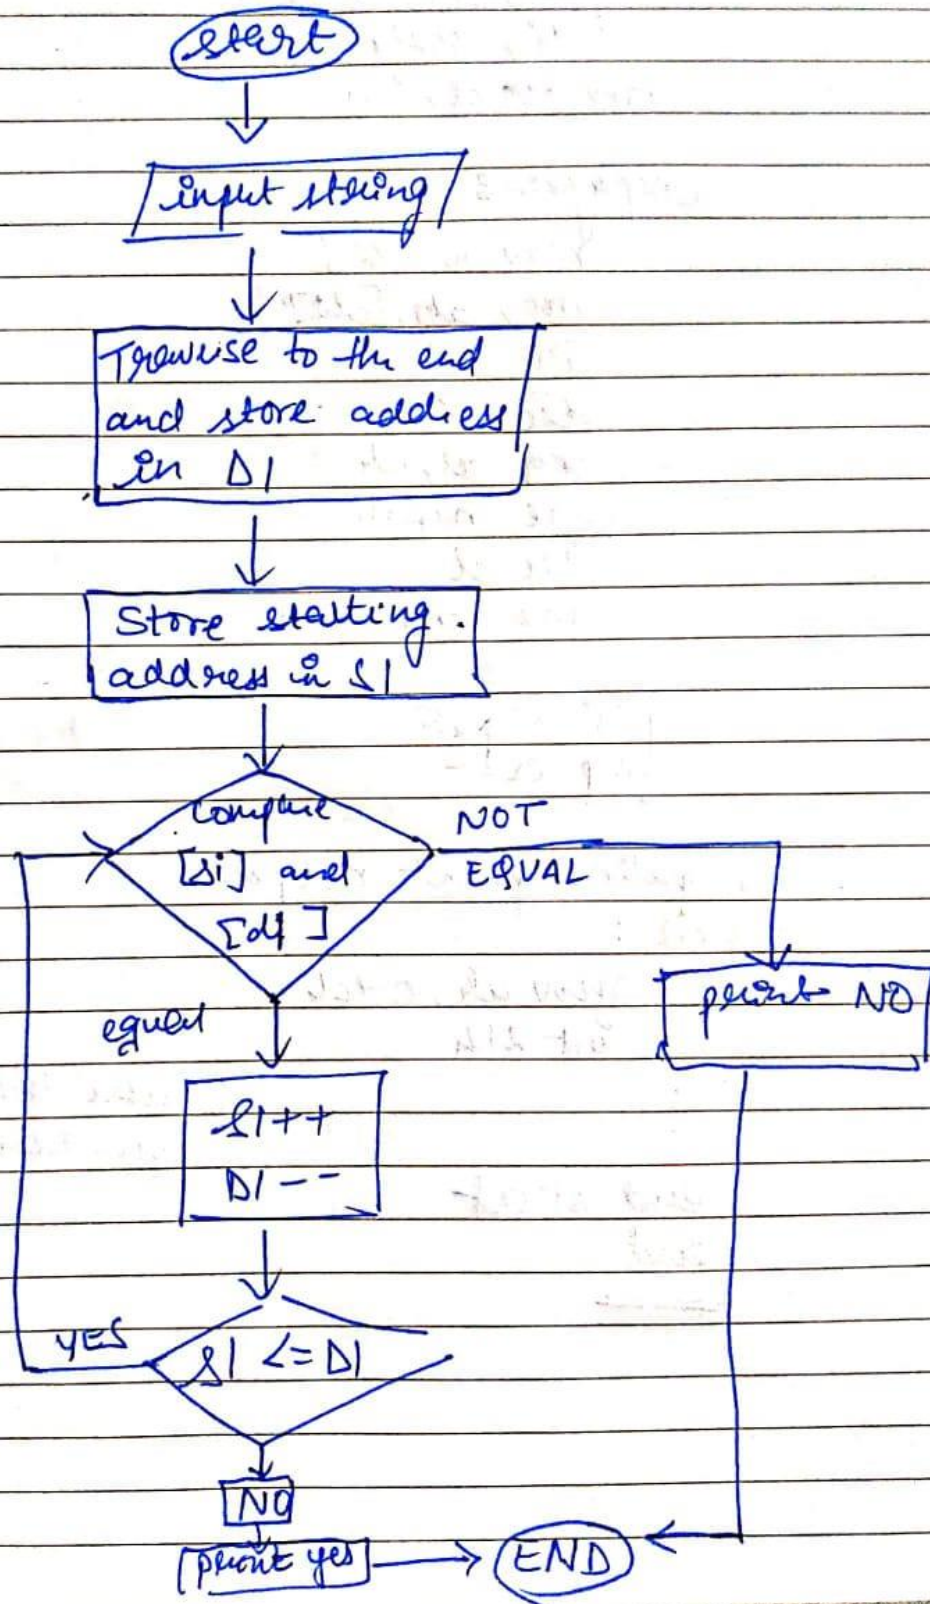 start
input string
Traverse to the end
and store address
in DI
Store starting
address in SI
compare
[si] and
[di]
NOT
EQUAL
print NO
equal
SI++
DI--
YES
SI <= DI
NO
print yes
END